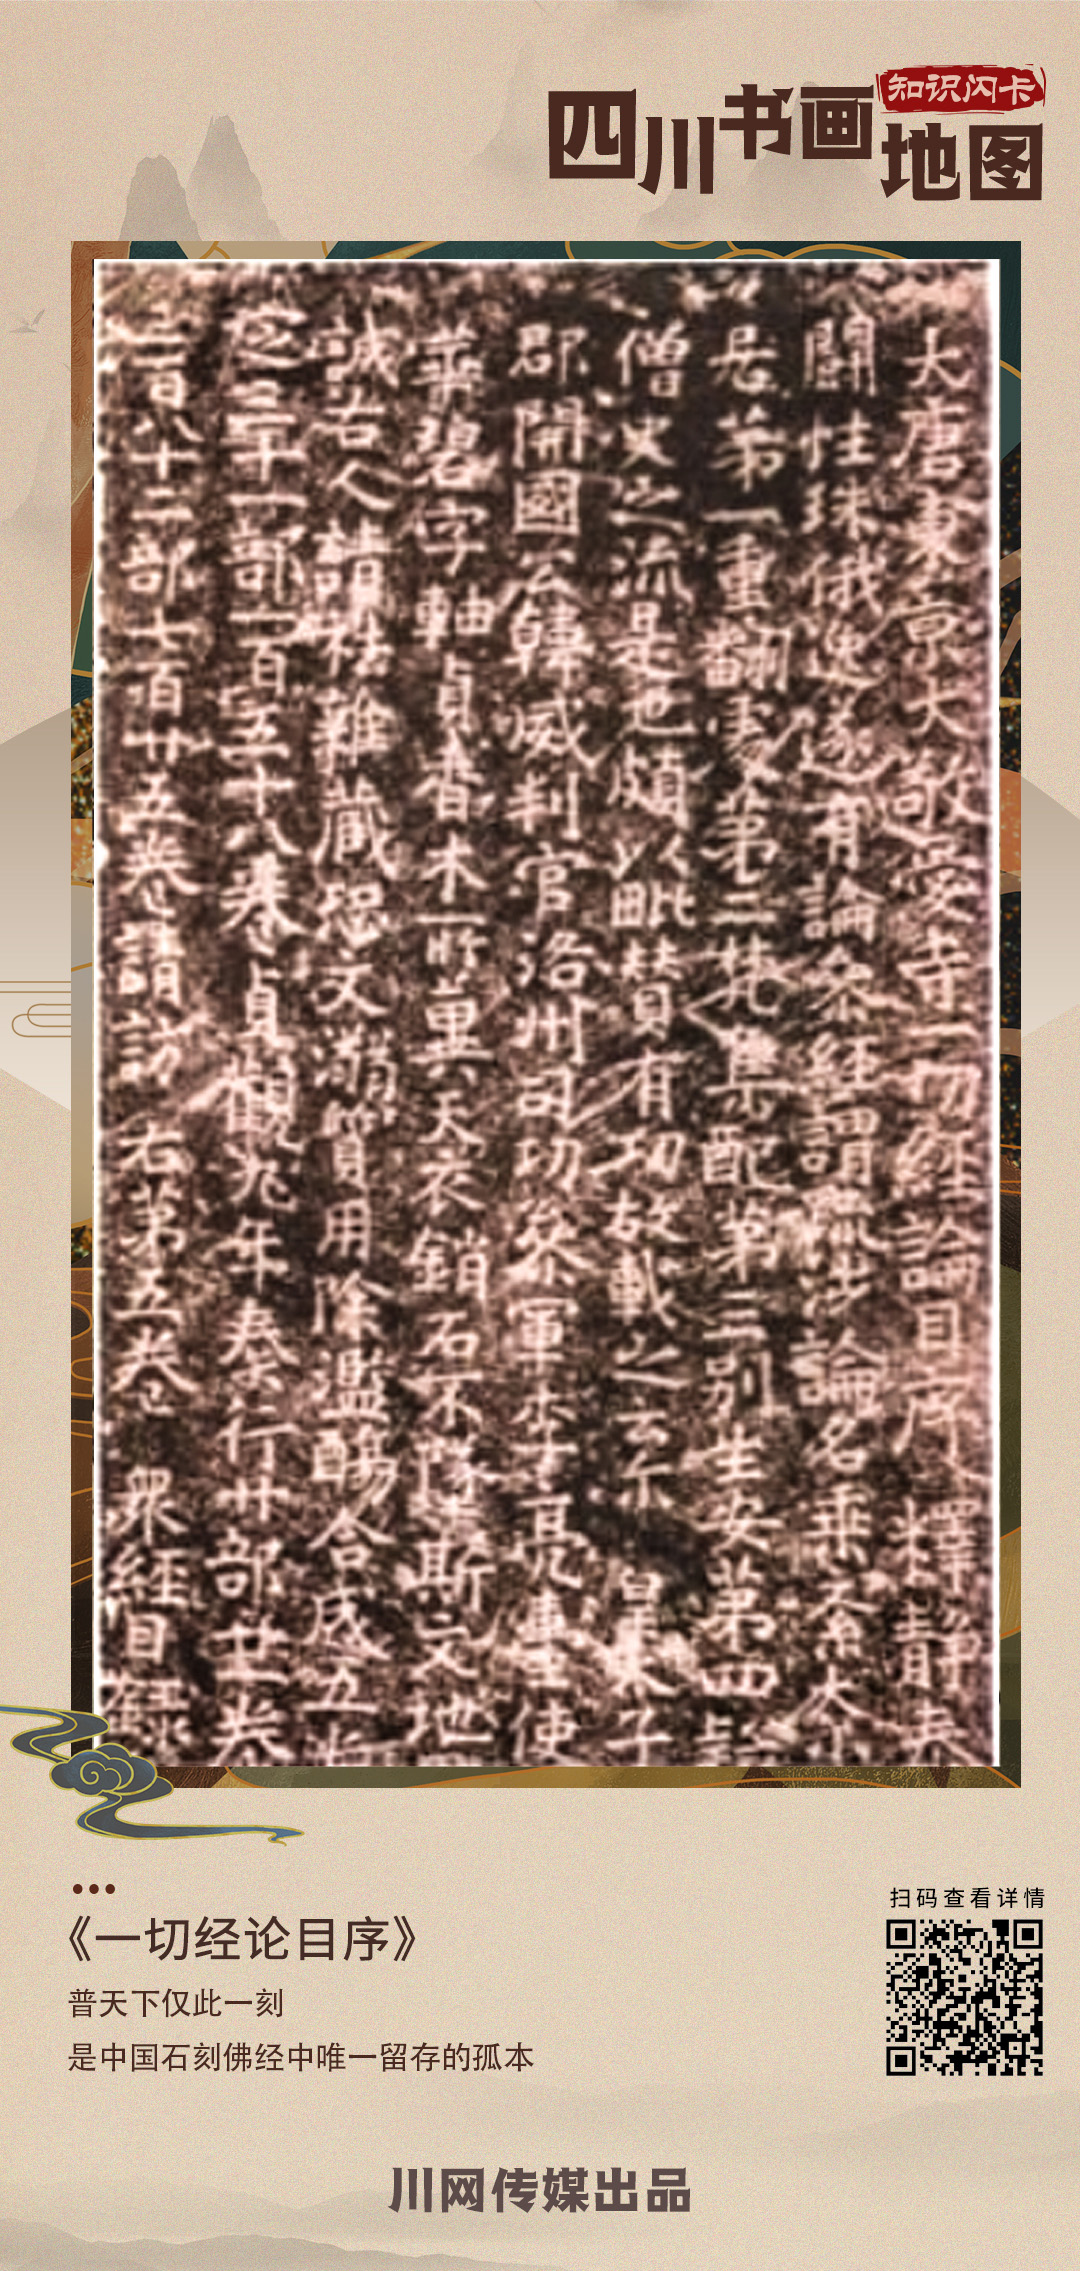 四川书画地图
知识闪卡
大唐東京大敬愛寺一切經論目序 釋靜泰
關性珠俄逸遂有論參經謂涉論名乖
居第一重翻為第二梵集配第三別生安第四
僧史之流是也頗以毗贊有功故載之云尔 皇太子
郡開國公韓威判官洛州司功參軍李亮重使
碧字軸貞香木一所異天衣銷石不隨斯文地
誠古人諸雜藏恐文質用除濫合成五
之三千一部一百五十八卷貞觀九年奉行廿部卅卷
三百八十二部七百廿五卷請訪 右第五卷 眾經目錄
《一切经论目序》
普天下仅此一刻
是中国石刻佛经中唯一留存的孤本
扫码查看详情
川网传媒出品